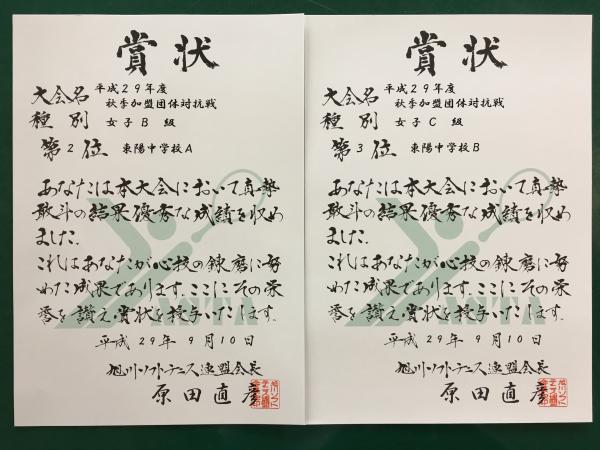 賞状
大会名 平成29年度
秋季加盟団体対抗戦
種別 女子B 級
第2位 東陽中学校A
あなたは本大会において真勢
敢斗の結果優秀な成績を収め
ました.
これはあなたが心技の錬磨に努
めた成果であります.ここにその栄
誉を讃え,賞状を授与いたします.
平成 29年 9月10日
旭川ソフトテニス連盟会長
原田直彦
賞状
大会名 平成29年度
秋季加盟団体対抗戦
種別 女子C 級
第3位 東陽中学校B
あなたは本大会において真勢
敢斗の結果優秀な成績を収め
ました.
これはあなたが心技の錬磨に努
めた成果であります.ここにその栄
誉を讃え,賞状を授与いたします.
平成 29年 9月10日
旭川ソフトテニス連盟会長
原田直彦